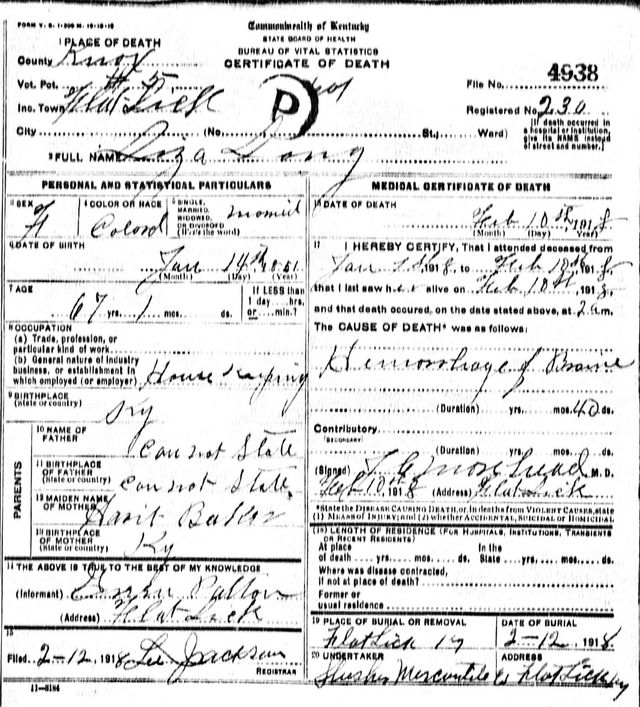 FORM V. S. 1-200 M. 10-18-16
Commonwealth of Kentucky
STATE BOARD OF HEALTH
BUREAU OF VITAL STATISTICS
CERTIFICATE OF DEATH
1 PLACE OF DEATH
County Knox
Vot. Pct. # 5
Inc. Town Flat Lick
P
File No. 4938
Registered No. 230
City (No. St.; Ward)
(If death occurred in a hospital or institution, give its NAME instead of street and number.)
2 FULL NAME Liza Long
PERSONAL AND STATISTICAL PARTICULARS
3 SEX F
4 COLOR OR RACE Colord
5 SINGLE, MARRIED, WIDOWED, OR DIVORCED (Write the word)
6 DATE OF BIRTH
Jan 14th 1851
(Month) (Day) (Year)
7 AGE
67 yrs. 1 mos. ds.
If LESS than 1 day....hrs. or....min.?
8 OCCUPATION
(a) Trade, profession, or particular kind of work
(b) General nature of industry business, or establishment in which employed (or employer) House Keeping
9 BIRTHPLACE
(State or country) Ky
PARENTS
10 NAME OF FATHER can not State
11 BIRTHPLACE OF FATHER (State or country) can not State
12 MAIDEN NAME OF MOTHER
13 BIRTHPLACE OF MOTHER (State or country) Ky
14 THE ABOVE IS TRUE TO THE BEST OF MY KNOWLEDGE
(Informant) Patton
(Address) Flat Lick
15
Filed 2-12, 1918 Lee Jackson
REGISTRAR
11-3184
MEDICAL CERTIFICATE OF DEATH
16 DATE OF DEATH
Feb 10th 1918
(Month) (Day) (Year)
17 I HEREBY CERTIFY, That I attended deceased from
Jan 1st 1918, to Feb 10th 1918,
that I last saw her alive on Feb 10th, 1918,
and that death occured, on the date stated above, at 2 am.
The CAUSE OF DEATH* was as follows:
Hemorrhage of Braine
(Duration) yrs. mos. 40 ds.
Contributory
(SECONDARY)
(Duration) yrs. mos. ds.
(Signed) Morehead M. D.
Feb 10th, 1918 (Address) Flat Lick
*State the DISEASE CAUSING DEATH, or, in deaths from VIOLENT CAUSES, state (1) MEANS OF INJURY; and (2) whether ACCIDENTAL, SUICIDAL or HOMICIDAL
18 LENGTH OF RESIDENCE (FOR HOSPITALS, INSTITUTIONS, TRANSIENTS OR RECENT RESIDENTS)
At place of death yrs. mos. ds. In the State yrs. mos. ds.
Where was disease contracted, if not at place of death?
Former or usual residence
19 PLACE OF BURIAL OR REMOVAL
Flat Lick Ky
DATE OF BURIAL
2-12, 1918
20 UNDERTAKER
Mercantile Co
ADDRESS
Flat Lick Ky